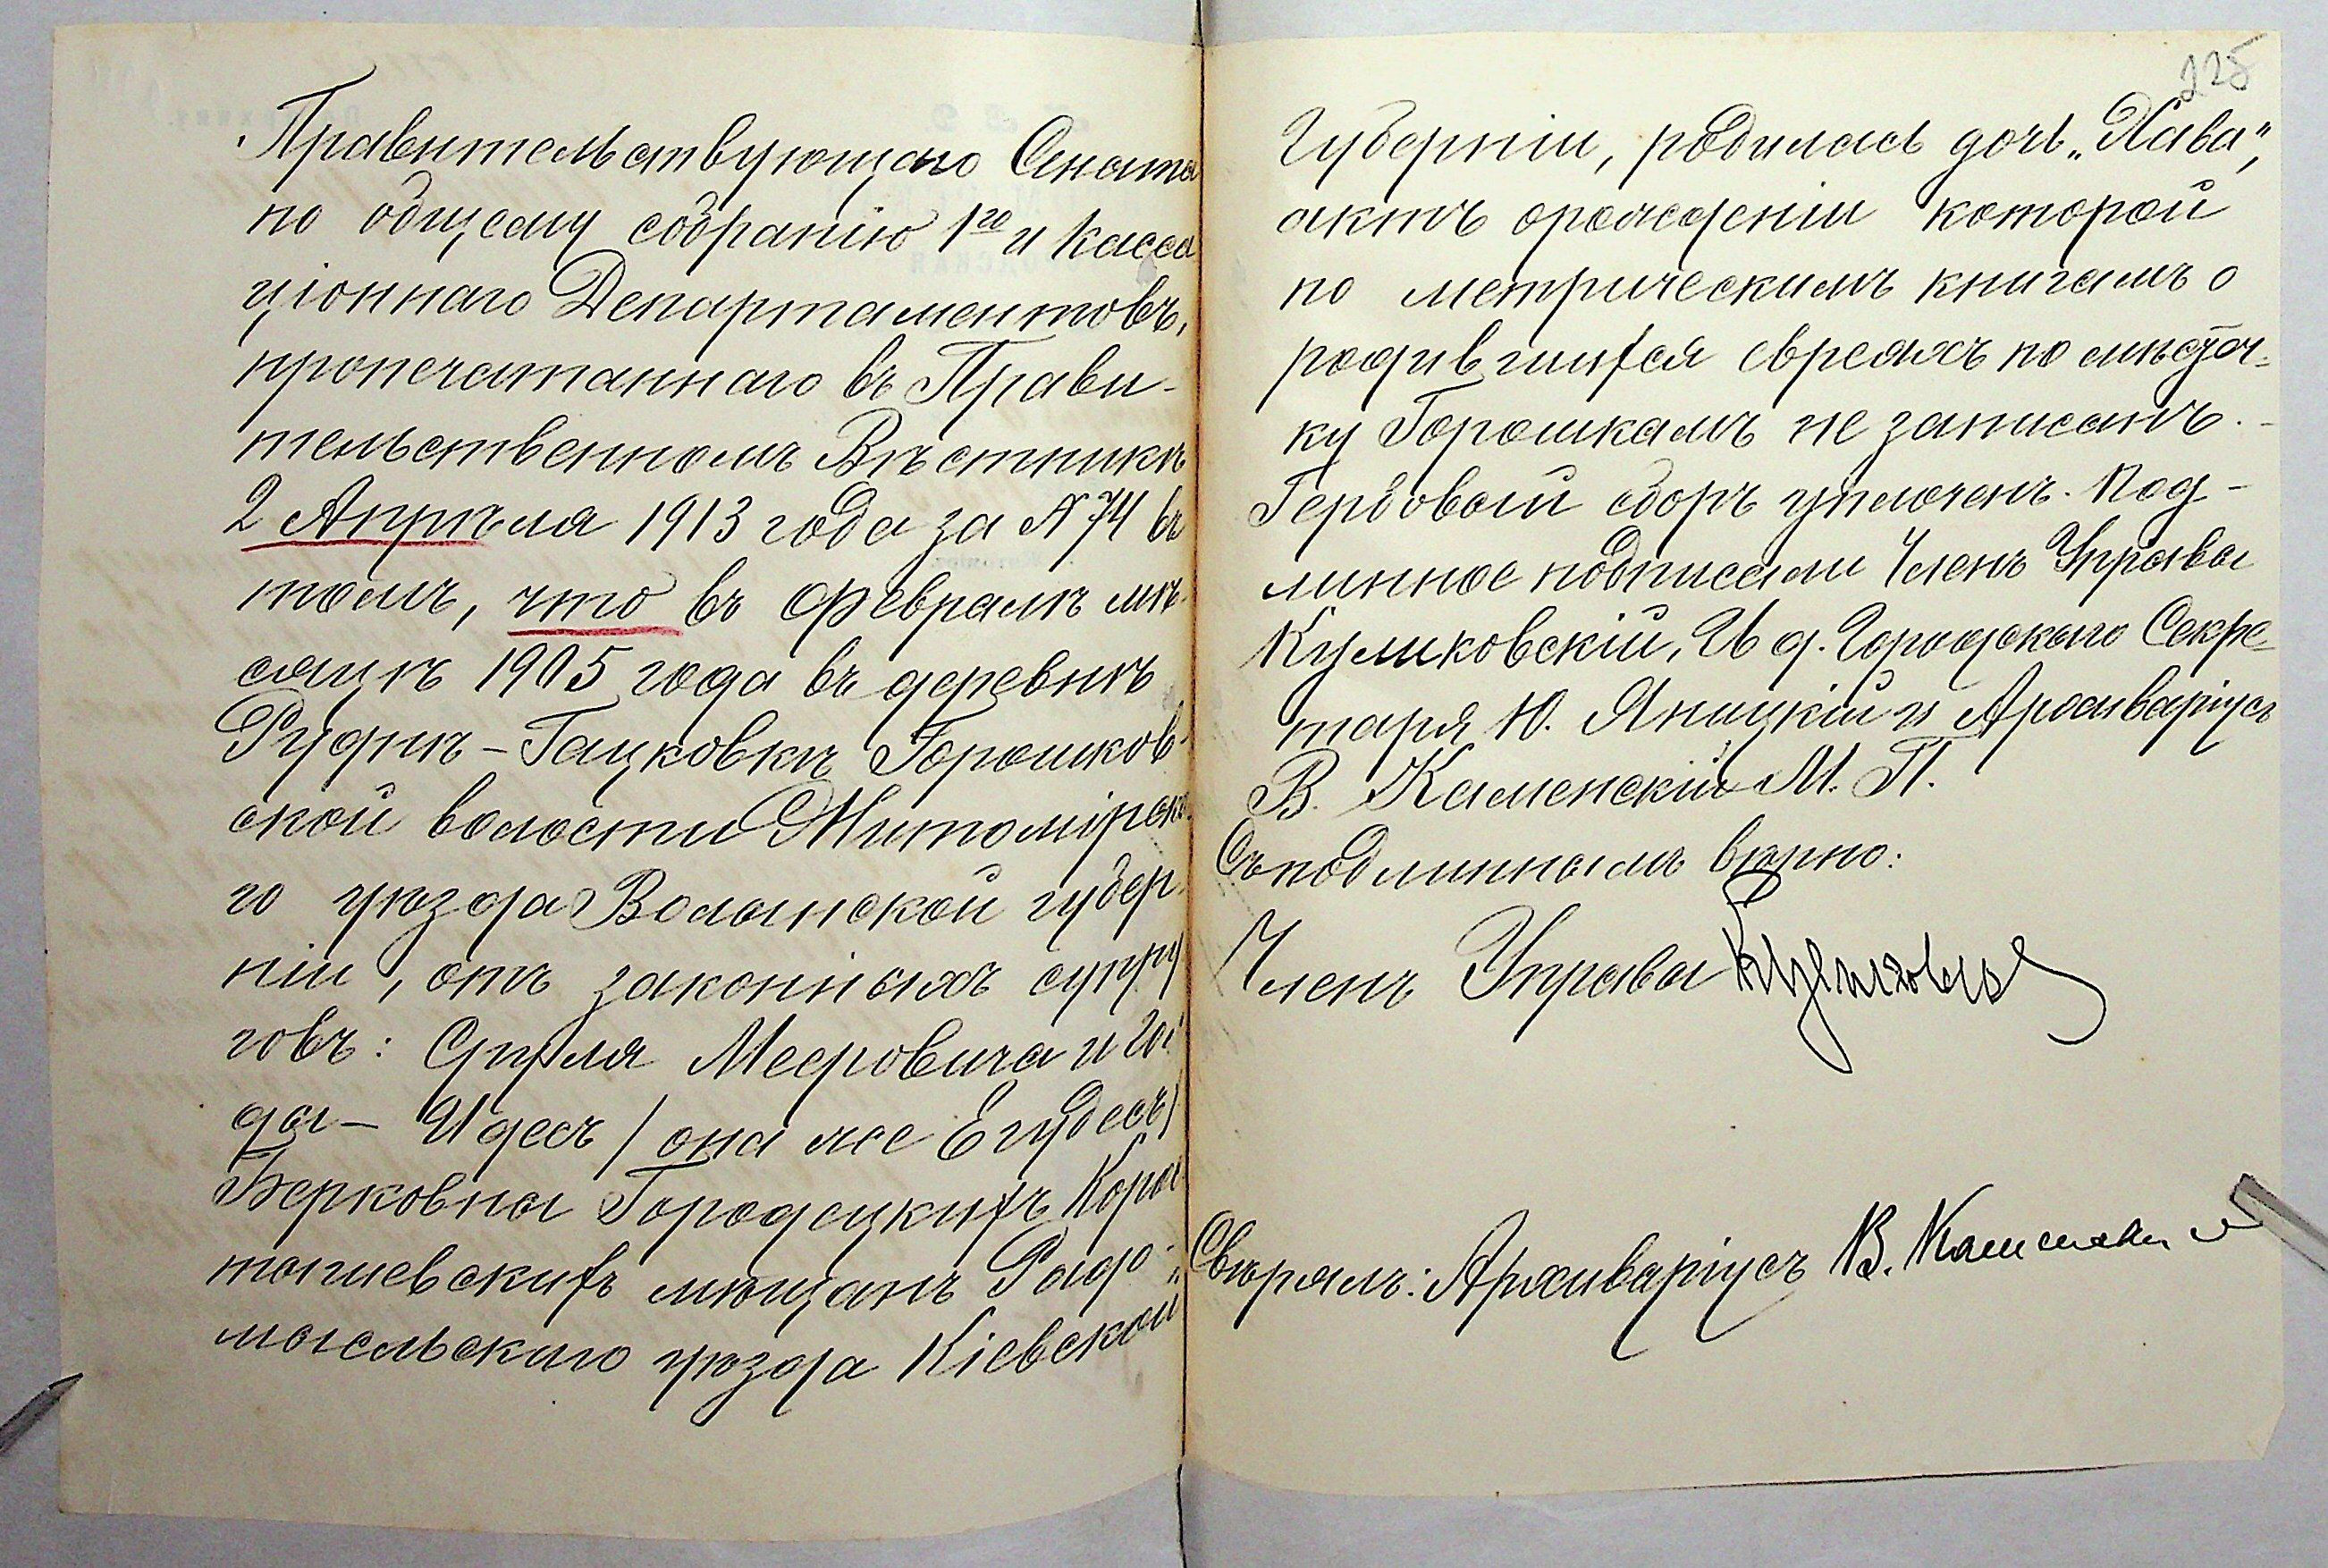 Правительствующаго Сената
по общему собранію 1го и Касса
ціоннаго Департаментовъ,
пропечатаннаго въ Прави-
тельственномъ Вѣстникѣ
2 Апрѣля 1913 года за № 74 въ
томъ, что въ февралѣ мѣ-
сяцѣ 1905 года въ деревнѣ
Рудни-Гацковкѣ Горошков-
ской волости Житомірска
го уѣзда Волынской губер-
ніи, отъ законныхъ супру
говъ: Мееровича и
ды-Идесъ /она же Егудесъ/
Берковны Городецкихъ Коро
стышевскихъ мѣщанъ Радо-
мысльскаго уѣзда Кіевской
225
Губерніи, родилась дочь „Хава“,
актъ о рожденіи которой
по метрическимъ книгамъ о
родившихся евреяхъ по мѣстеч-
ку Горошкамъ не записанъ.-
Гербовый сборъ уплоченъ. Под-
линное подписали Членъ Управы
Куликовскій, И. д. Городского Секре-
таря Ю. Яницкій и Архиваріусъ
В. Каменскій М. П.
Съ подлиннымъ вѣрно:
Членъ Управы
Свѣрялъ: Архиваріусъ В. Каменскій